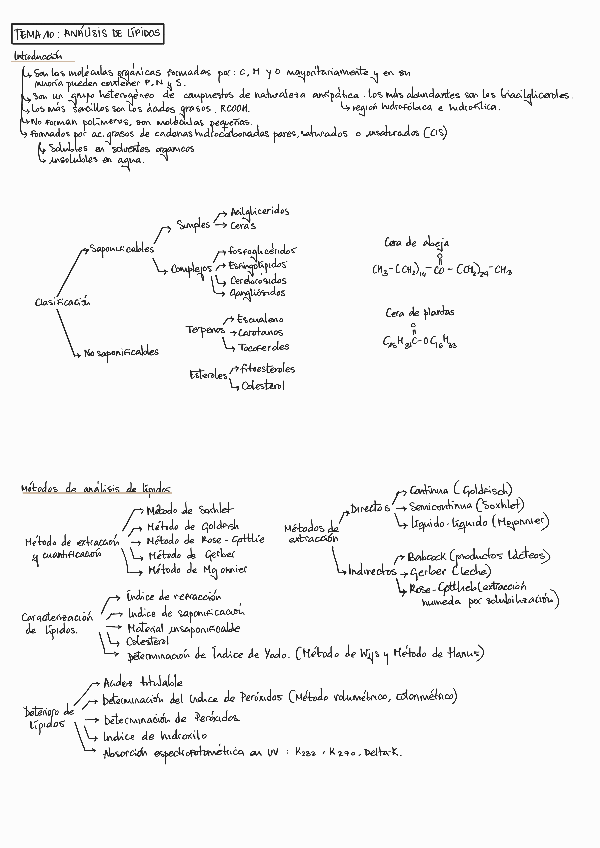 TEMA 10: ANÁLISIS DE LÍPIDOS
Introducción
↳ Son las moléculas orgánicas formadas por: C, H y O mayoritariamente y en su
minoría pueden contener P, N y S.
↳ Son un grupo heterogéneo de compuestos de naturaleza antipática. Los más abundantes son los triacilgliceroles.
↳ Los más sencillos son los ácidos grasos, RCOOH.
↳ región hidrofóbica e hidrofílica.
↳ No forman polímeros, son moléculas pequeñas.
↳ Formados por ac. grasos de cadenas hidrocarbonadas pares, saturados o insaturados (CIS)
↳ Solubles en solventes organicos
↳ insolubles en agua.
Clasificación
Saponificables
Simples
Acilgliceridos
Ceras
Complejos
fosfoglicéridos
Esfingolípidos
Cerebrosidos
Gangliósidos
No saponificables
Terpenos
Escualeno
Carotenos
Tocoferoles
Esteroles
fitoesteroles
Colesterol
Cera de abeja
O
CH3-(CH2)14-CO-(CH2)29-CH3
Cera de plantas
O
C15H31C-OC16H33
Métodos de análisis de lípidos
Método de extracción
y cuantificación
Método de Soxhlet
Método de Goldfish
Método de Rose-Gottlie
Método de Gerber
Método de Mojonnier
Métodos de
extracción
Directos
Continua (Goldfisch)
Semicontinua (Soxhlet)
Líquido-líquido (Mojonnier)
Indirectos
Babcock (productos lácteos)
Gerber (leche)
Rose-Gottlieb (extracción
humeda por solubilización)
Caracterización
de lípidos.
Índice de refracción
Indice de saponificación
Material insaponificable
Colesterol
Determinación de Índice de Yodo. (Método de Wijs y Método de Hanus)
Deterioro de
lípidos
Acidez titulable
Determinación del Indice de Peróxidos (Método volumétrico, colorimétrico)
Determinación de Peróxidos
Indice de hidroxilo
Absorción espectrofotométrica en UV: K232, K270, Delta-K.